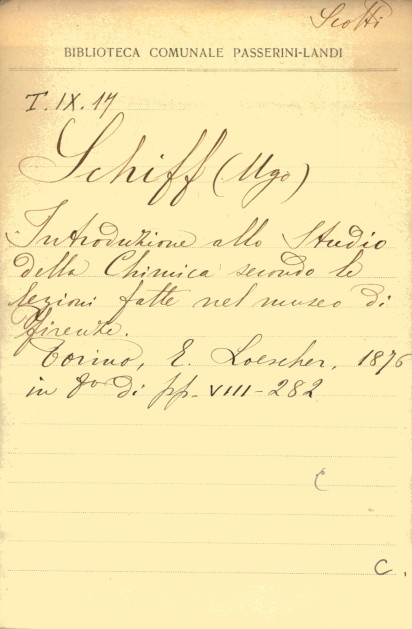 Scotti
BIBLIOTECA COMUNALE PASSERINI-LANDI
T. IX. 17
Schiff (Ugo)
Introduzione allo Studio
della Chimica secondo le
lezioni fatte nel museo di
Firenze.
Torino, E. Loescher, 1876
in 8º di pp. VIII-282
C
C.